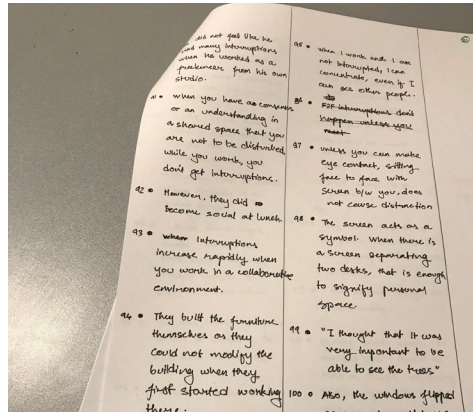 did not feel like he
had many interruptions
when he worked as a
freelancer from his own
studio.
91 • when you have a consensus
or an understanding in
a shared space that you
are not to be disturbed
while you work, you
don't get interruptions.
92 • However, they did
become social at lunch
93 • when Interruptions
increase rapidly when
you work in a collaborative
environment.
94 • They built the furniture
themselves as they
could not modify the
building when they
first started working
there.
95 • When I work and I am
not interrupted, I can
concentrate, even if I
can see other people.
96 • F2F interruptions don't
happen unless you
97 • unless you can make
eye contact, sitting
face to face with
screen b/w you, does
not cause distraction
98 • The screen acts as a
symbol. When there is
a screen separating
two desks, that is enough
to signify personal
space
99 • "I thought that it was
very important to be
able to see the trees"
100 • Also, the windows flipped